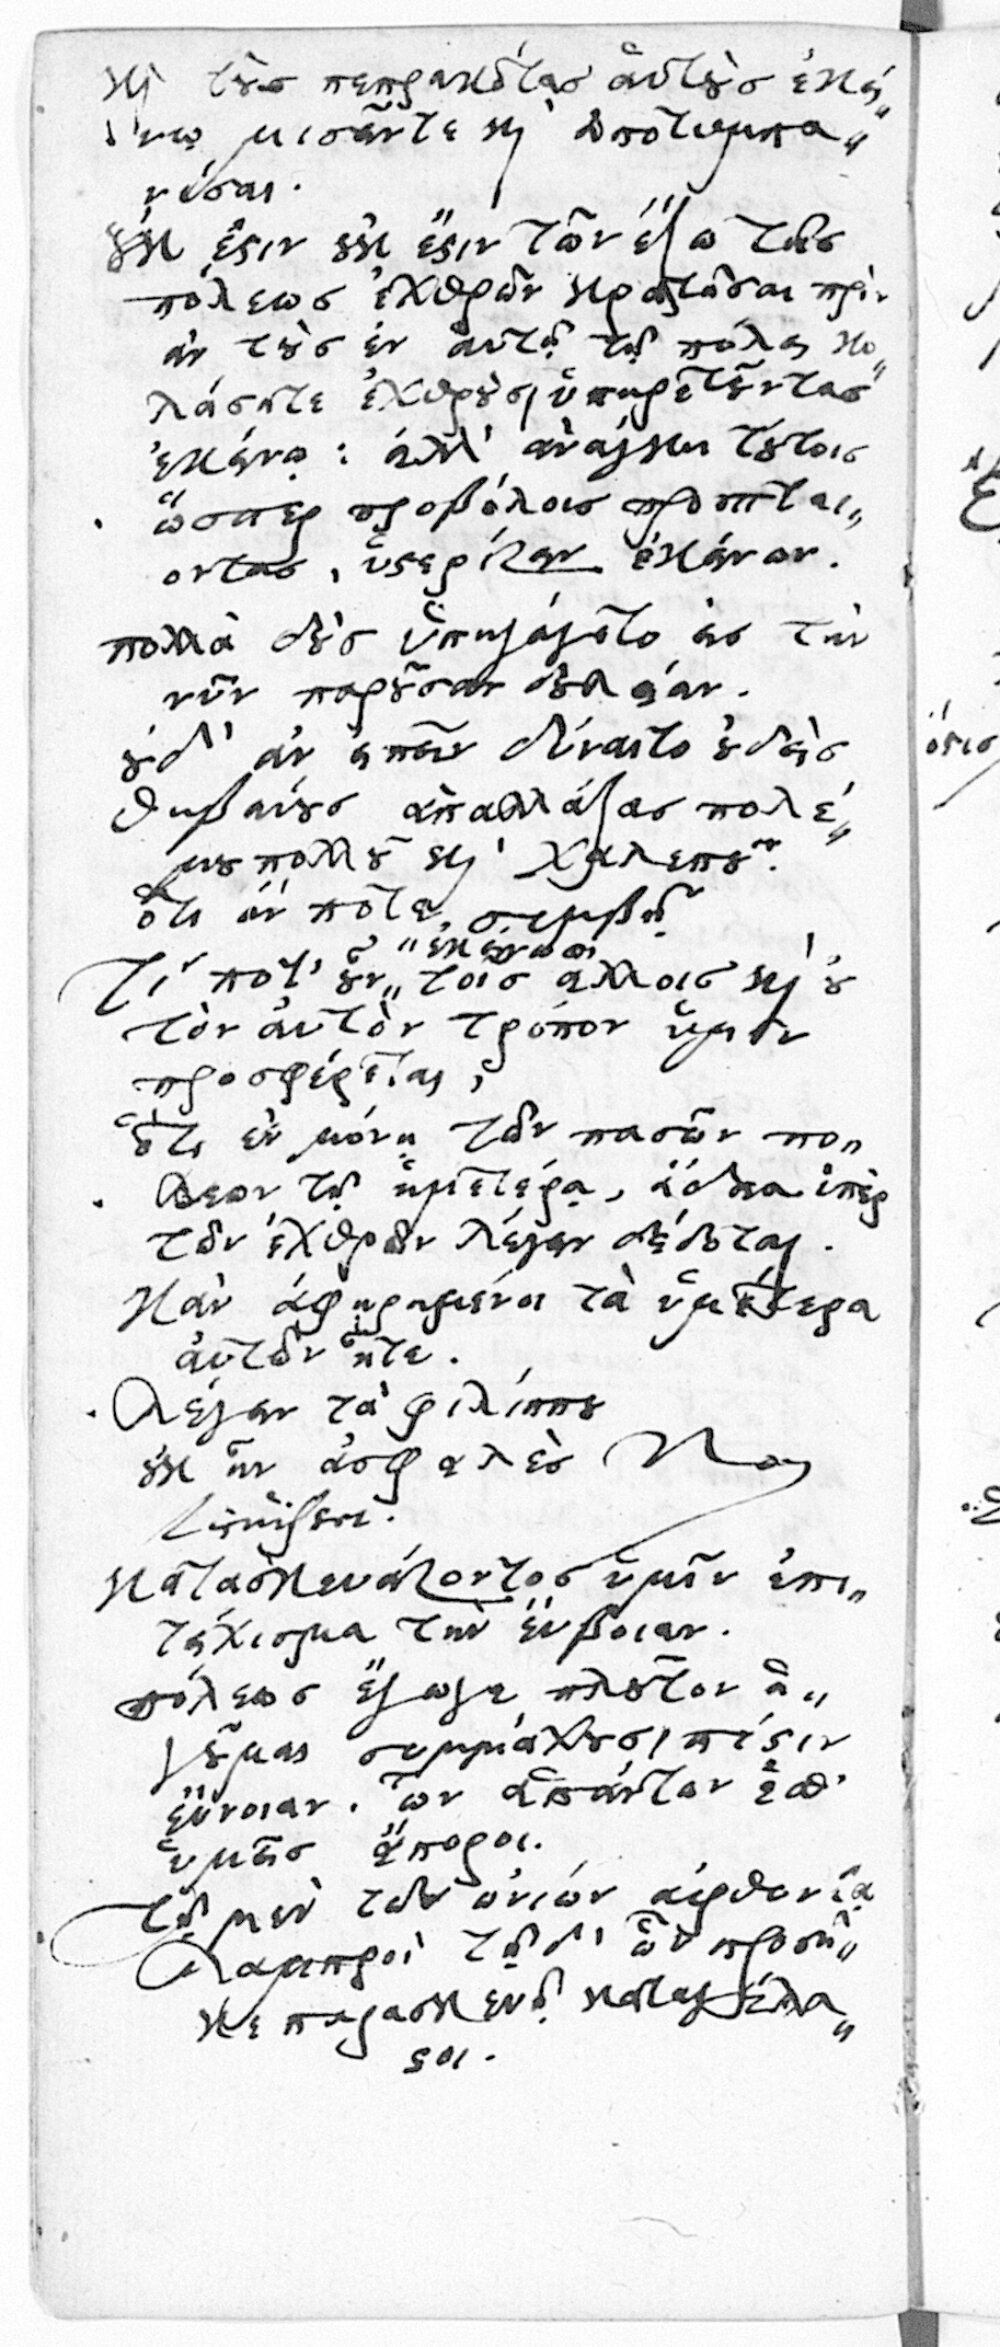 καὶ τοὺς πεπρακότας αὐτοὺς ἐκεί„
νῳ μισεῖτε καὶ ἀποτυμπα„
νίσαι.
οὐκ ἔστιν οὐκ ἔστιν τῶν ἔξω τῆς
πόλεως ἐχθρῶν κρατῆσαι πρὶν
ἂν τοὺς ἐν αὐτῇ τῇ πόλει κο„
λάσητε ἐχθροὺς, ὑπηρετοῦντας
ἐκείνῳ: ἀλλ' ἀνάγκη τούτοις
ὥσπερ προβόλοις προσπταί„
οντας, ὑστερίζειν ἐκείνων.
πολλὰ δοὺς ὑπηγάγετο εἰς τὴν
νῦν παροῦσαν δουλείαν.
οὐδ' ἂν εἰπεῖν δύναιτο οὐδεὶς
θηβαίους ἀπαλλάξας πολέ„
μου πολλοῦ καὶ χαλεποῦ.
ὅτι ἄν ποτε συμβῇ
Τί ποτ' οὖν „ ἐκείνως
τοῖς ἄλλοις καὶ οὐ
τὸν αὐτὸν τρόπον ὑμῖν
προσφέρεται,
ὅτι ἐν μόνῃ τῶν πασῶν πό„
λεων τῇ ὑμετέρᾳ, ἄδεια ὑπὲρ
τῶν ἐχθρῶν λέγειν δέδοται.
κἂν ἀφῃρημένοι τὰ ὑμέτερα
αὐτῶν ἦτε.
λέγειν τὰ φιλίππου
οὐκ ἦν ἀσφαλὲς
κατασκευάζοντος ὑμῖν ἐπι„
τείχισμα τὴν εὔβοιαν.
πόλεως ἔγωγε πλοῦτον ἡ„
γοῦμαι συμμάχους, πίστιν
εὔνοιαν. ὧν ἁπάντων ἐσθ'
ὑμεῖς ἄποροι.
τῇ μὲν τῶν ὠνίων ἀφθονίᾳ
λαμπροὶ τῇ δ' ὧν προσῆ„
κε παρασκευῇ καταγέλα„
στοι.